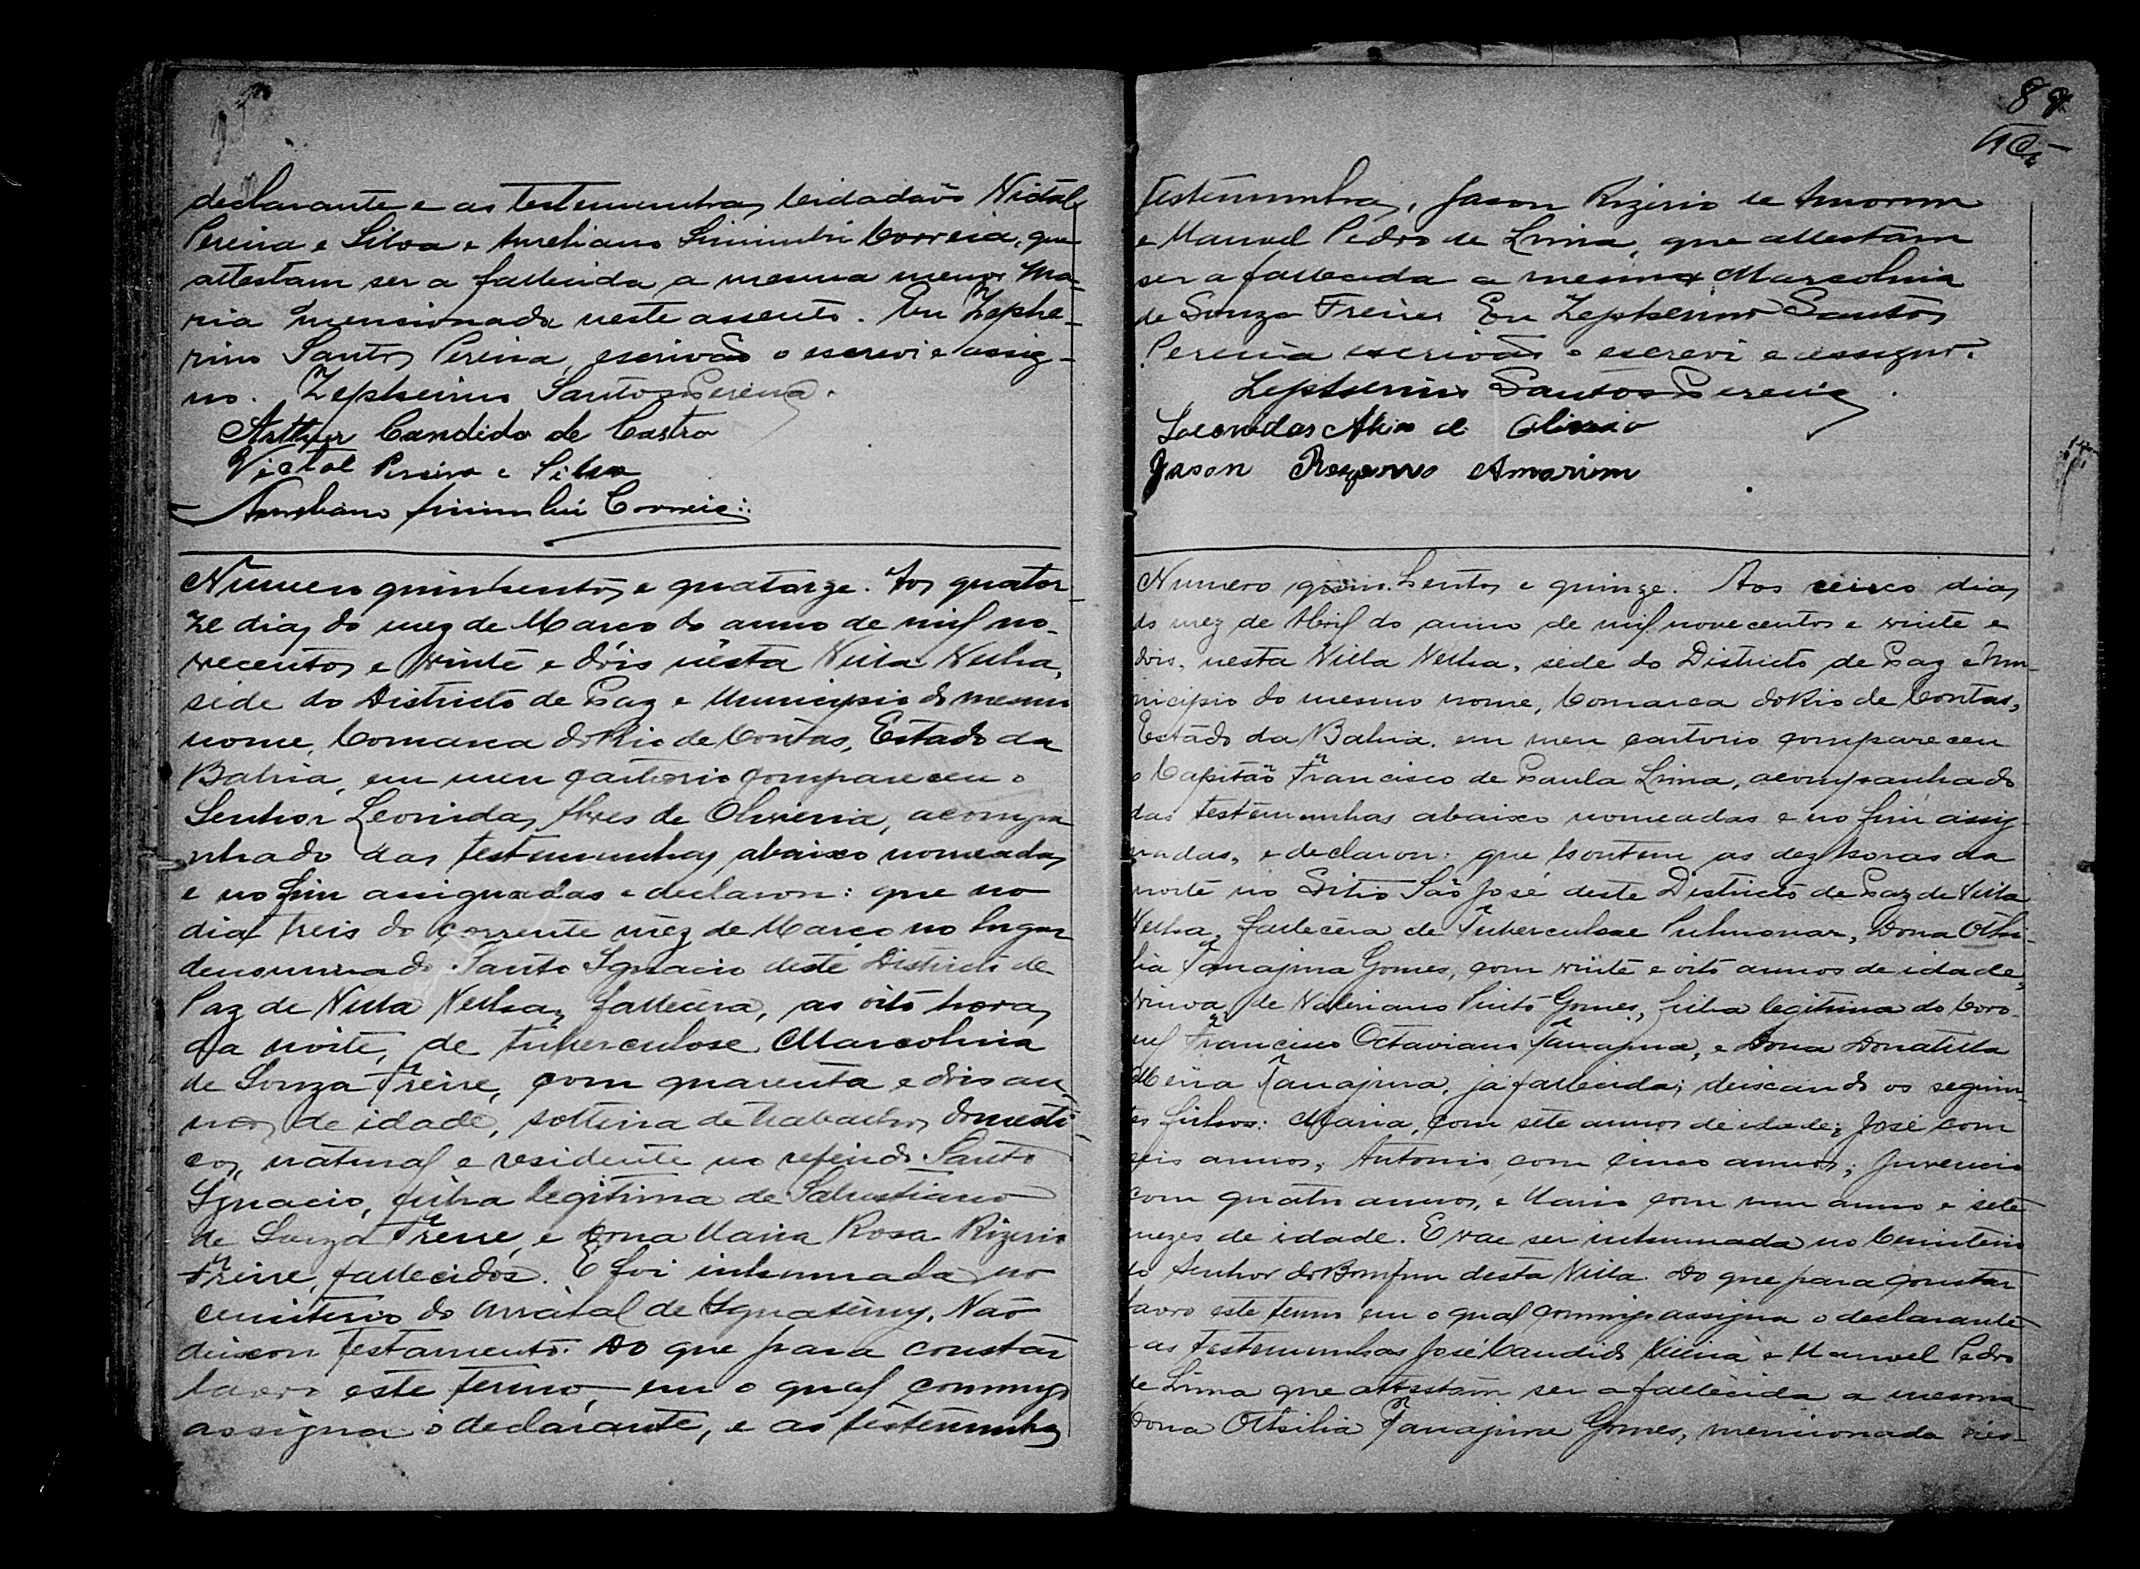 declarante e as testemunhas Cidadãos Victal
Pereira e Silva e Aureliano Sinimbú Correia, que
attestam ser a fallecida a mesma menor Ma-
ria mencionada neste assento. Eu Zephe-
rino Santos Pereira, escrivão o escrevi e assig-
no. Zepherino Santos Pereira.
Arthur Candido de Castro
Victal Pereira e Silva
Aureliano Sinimbú Correia
Numero quinhentos e quatorze. Aos quator-
ze dias do mez de Março do anno de mil no-
vecentos e vinte e dóis nésta Villa Velha,
séde do Districto de Paz e Municipio do mesmo
nome, Comarca do Rio de Contas, Estado da
Bahia, em meu cartorio compareceu o
Senhor Leonidas Alves de Oliveira, acompa
nhado das testemunhas abaixo nomeadas
e no fim assignadas e declarou: que no
dia treis do corrente méz de Março no lugar
denominado Santo Ignacio deste Districto de
Paz de Villa Velha, fallecêra, as oito horas
da noite, de tuberculose Marcolina
de Souza Freire, com quarenta e dois an
nos de idade, solteira de trabalhos domesti-
cos, natural e residente no referido Santo
Ignacio, filha legitima de Salustiano
de Souza Freire, e Dona Maria Rosa Rizerio
Freire, fallecidos. E foi inhumada no
cemiterio do arraial de Iguatemy. Não
deixou testamento. Do que para constar
lavro este termo, em o qual commigo
assigna o declarante, e as testemunhas
89
testemunhas, Jason Rizerio de Amorim
e Manoel Pedro de Lima, que attestam
ser a fallecida a mesma Marcolina
de Souza Freire. Eu Zepherino Santos
Pereira escrivão o escrevi e assigno.
Zepherino Santos Pereira.
Leonidas de Oliveira
Jason Amorim
Numero quinhentos e quinze. Aos cinco dias
do mez de Abril do anno de mil novecentos e vinte e
dois, nesta Villa Velha, séde do Districto de Paz e Mu-
nicipio do mesmo nome, Comarca do Rio de Contas,
Estado da Bahia, em meu cartorio compareceu
o Capitão Francisco de Paula Lima, acompanhado
das testemunhas abaixo nomeadas e no fim assig-
nadas, e declarou: que hontem as dez horas da
noite no Sitio São José deste Districto de Paz de Villa
Velha, fallecêra de Tuberculose Pulmonar, Dona Othi-
lia Tanajura Gomes, com vinte e oito annos de idade,
viuva de Valeriano Pinto Gomes, filha legitima do Coro-
nel Francisco Octaviano Tanajura, e Dona Donatilla
Meira Tanajura, já fallecida; deixando os seguin-
tes filhos: Maria, com sete annos de idade; José com
seis annos; Antonio, com cinco annos; Juvencio
com quatro annos, e Mario com um anno e sete
mezes de idade. E vae ser inhumada no Cemiterio
do Senhor do Bomfim desta Villa. Do que para constar
lavro este termo em o qual commigo assigna o declarante
e as testemunhas José Candido Vieira e Manoel Pedro
de Lima que attestam ser a fallecida a mesma
Dona Othilia Tanajura Gomes, mencionada nes-